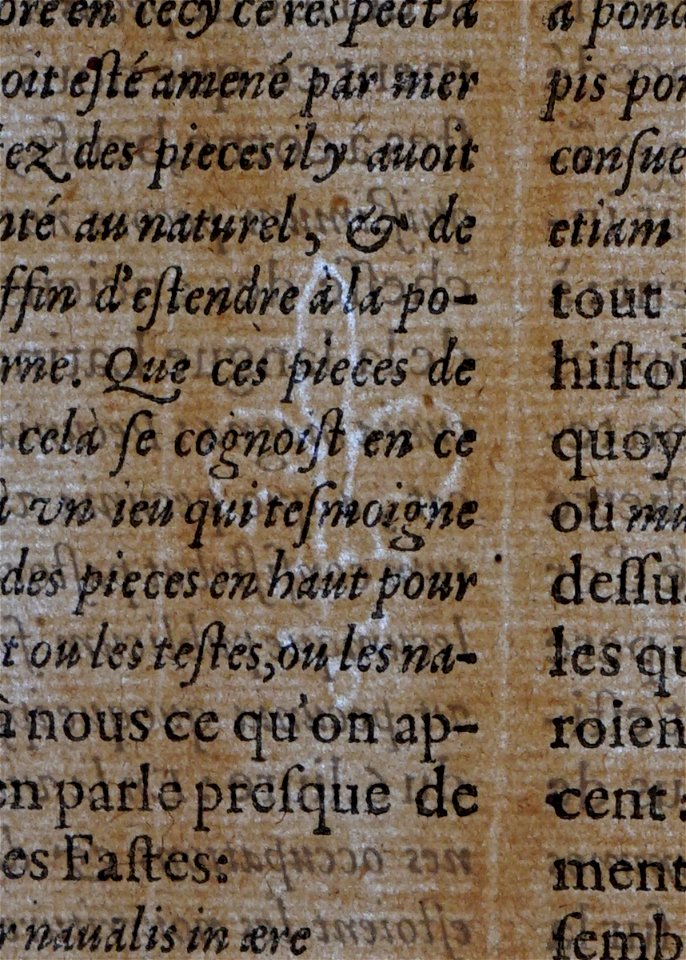 ore en cecy ce respect a
oit eſté amené par mer
ez des pieces il y auoit
nté au naturel, & de
ffin d'eſtendre à la po-
rne. Que ces pieces de
celà ſe cognoiſt en ce
à vn ieu qui teſmoigne
des pieces en haut pour
t ou les teſtes, ou les na-
à nous ce qu'on ap-
en parle preſque de
es Faſtes:
r naualis in ære
a pon
pis po
conſue
etiam
tout
hiſtoi
quoy
ou mu
deſſu
les qu
roien
cent
ment
ſemb